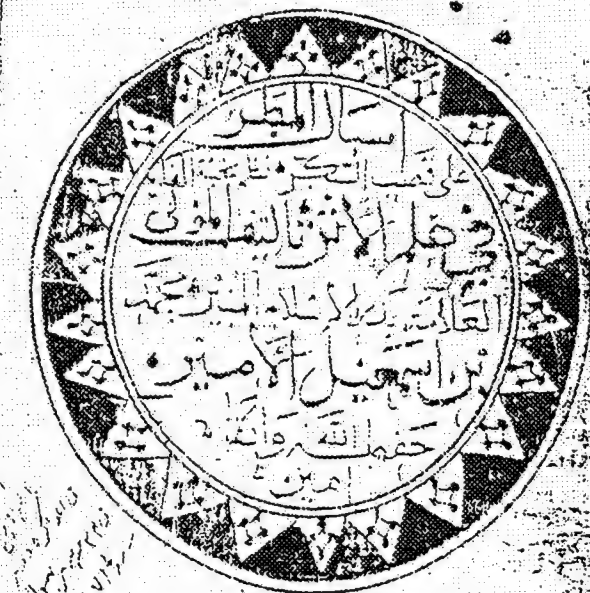 اسبال المطر
على قصب السكر نظم نخبة الفكر
في علم الأثر تاليف المولى
العلامة بدر الاسلام السيد محمد
بن اسمعيل الامير
حفظه الله وابقاه
امين